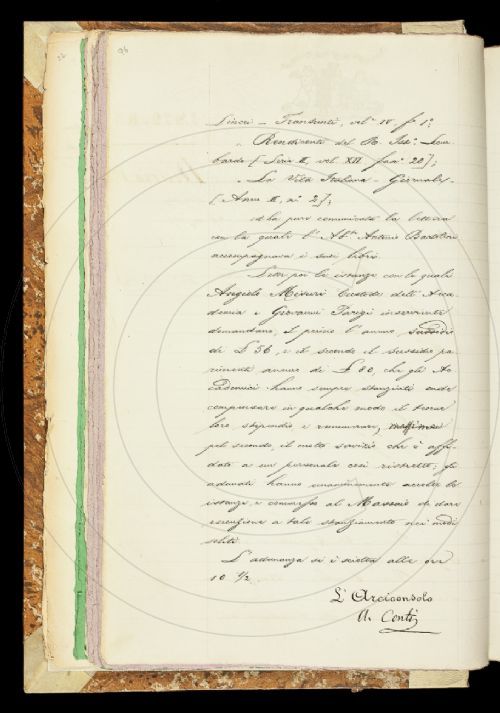 96
Lincei - Transunti, vol. IV f. 1°;
" Rendiconto del R. Ist° Lom-
bardo [Serie II, vol. XII fasc. 20];
" La Vita Italiana - Giornale -
[Anno II, n° 2];
ed ha pure comunicata la lettera
con la quale l' Ab. Antonio Bartolini
accompagnava i suoi libri.
Lette poi le istanze con le quali
Angiolo Misuri Custode dell' Acca-
demia e Giovanni Parigi inserviente
domandano, il primo l' annuo sussidio
di £ 56, e il secondo il sussidio pa-
rimente annuo di £ 80, che gli Ac-
cademici hanno sempre stanziati onde
compensare in qualche modo il tenue
loro stipendio e rimunerare, massime
pel secondo, il molto servizio che è affi-
dato a un personale così ristretto; gli
adunati hanno unanimemente accolte le
istanze, e commesso al Massaio di dare
esecuzione a tale stanziamento nei modi
soliti.
L' adunanza si è sciolta alle ore
10 1/2.
L' Arciconsolo
A. Conti